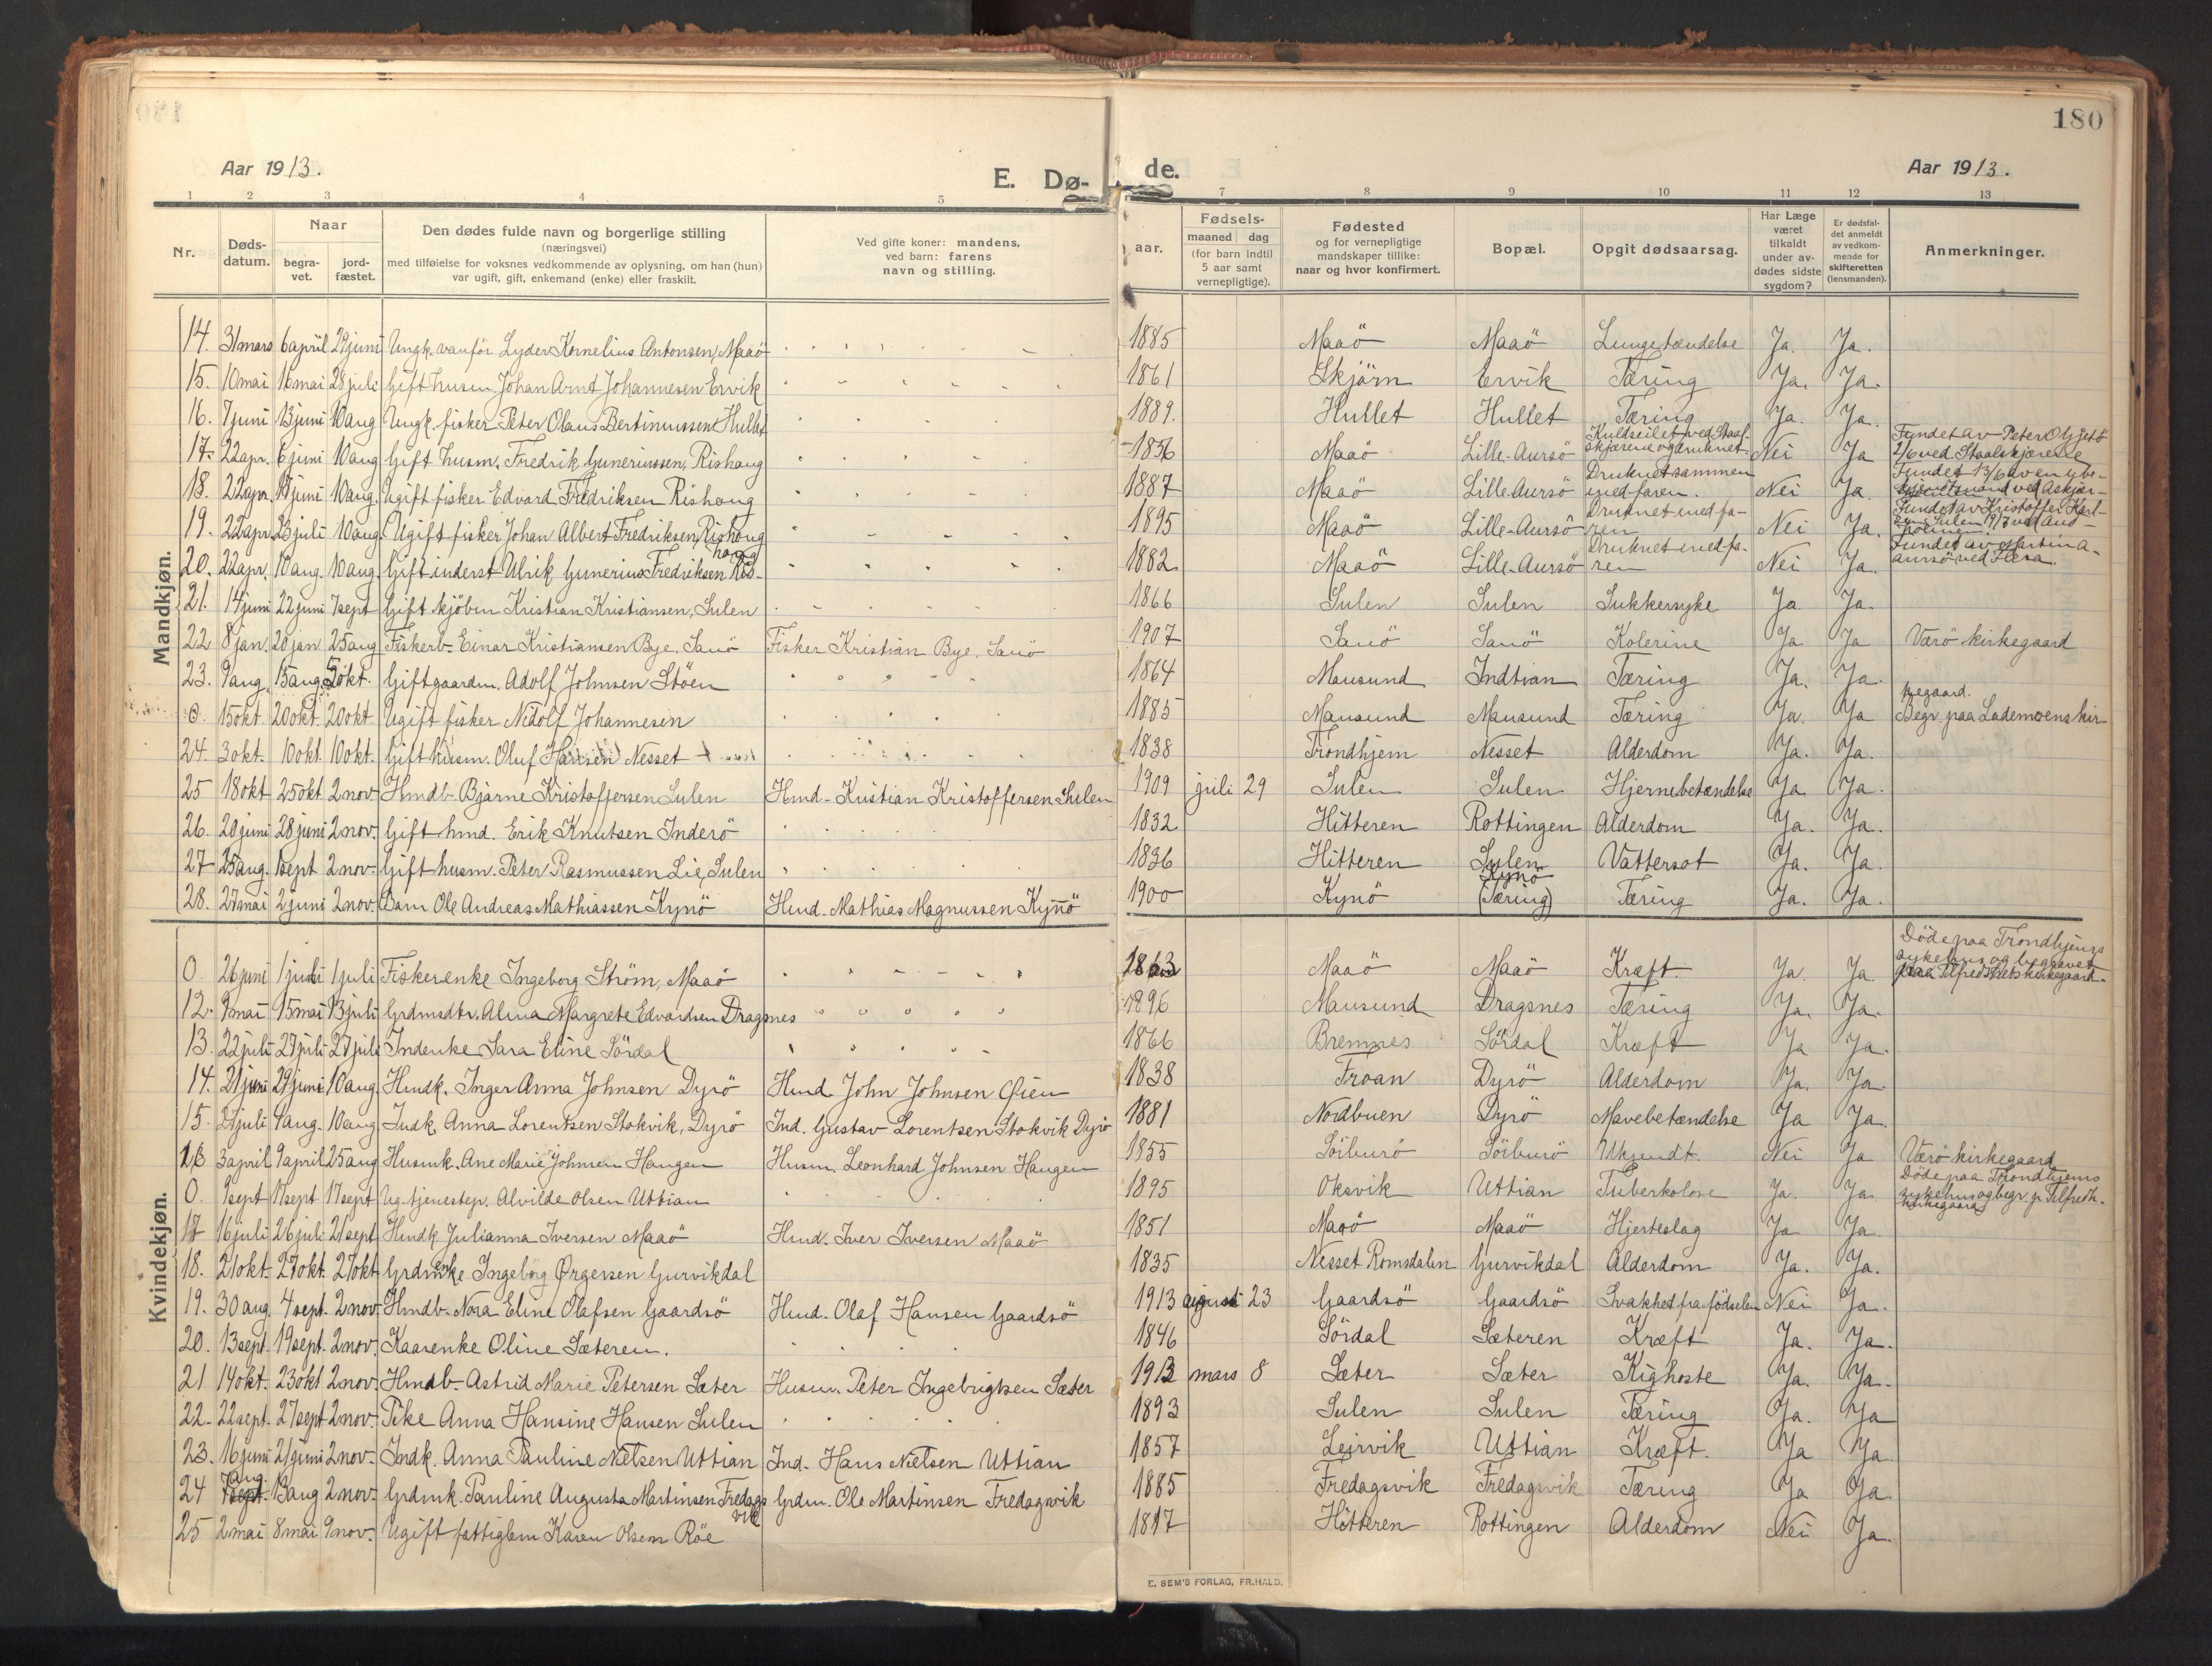 180
Aar 1913.
E. Dø-
de.
Aar 1913.
1 2 3 4 5 7 8 9 10 11 12 13
Nr.
Døds-
datum.
Naar
begra-
vet.
jord-
fæstet.
Den dødes fulde navn og borgerlige stilling
(næringsvei)
med tilføielse for voksnes vedkommende av oplysning, om han (hun)
var ugift, gift, enkemand (enke) eller fraskilt.
Ved gifte koner: mandens,
ved barn: farens
navn og stilling.
aar.
Fødsels-
maaned dag
(for barn indtil
5 aar samt
vernepligtige).
Fødested
og for vernepligtige
mandskaper tillike:
naar og hvor konfirmert.
Bopæl.
Opgit dødsaarsag.
Har Læge
været
tilkaldt
under av-
dødes sidste
sygdom?
Er dødsfal-
det anmeldt
av vedkom-
mende for
skifteretten
(lensmanden).
Anmerkninger.
Mandkjøn.
14. 31 mars 6 april 29 juni Ungk. vanför Lyder Kornelius Antonsen, Maaö 1885 Maaö Maaö Lungetændelse Ja. Ja.
15. 10 mai 16 mai 28 juli Gift husm. Johan Arnt Johannesen Ervik 1861 Skjörn Ervik Tæring Ja. Ja.
16. 7 juni 13 juni 10 aug Ungk. fisker Peter Olaus Bertinussen Hullet 1889. Hullet Hullet Tæring Ja. Ja.
17. 22 apr. 6 juni 10 aug Gift husm. Fredrik Gunerinssen, Rishaug 1856 Maaö Lille-Aursö Kuldseilet ved Staal-
skjærene og druknet Nei Ja Fundet av Peter O.
2/6 ved Staalskjærene
18. 22 apr. juni 10 aug. Ugift fisker Edvard Fredriksen Rishaug 1887 Maaö Lille Aursö Druknet sammen
med faren. Nei Ja. Fundet 13/6 av en
19. 22 apr. 23 juli 10 aug. Ugift fisker Johan Albert Fredriksen, Rishaug 1895 Maaö Lille-Aursö Druknet med fa-
ren Nei Ja. Fundet av Kristoffer Karl-
sen Sulen 19/7 ved
20. 22 apr. 10 aug. 10 aug. Gift inderst Ulrik Gunerius Fredriksen Ris-
haug 1882 Maaö Lille-Aursö Druknet med fa-
ren Nei Ja. Fundet av Martin A.
Aursö ved
21. 14 juni 22 juni 7 sept Gift kjöbm Kristian Kristiansen, Sulen 1866 Sulen Sulen Sukkersyke Ja Ja.
22 8 jan. 20 jan 25 aug Fiskerb. Einar Kristiansen Bye, Sauö Fisker Kristian Bye. Sauö 1907 Sauö Sauö Kolerine Ja Ja Værö kirkegaard
23. 9 aug. 15 aug. 5 okt. Gift gaardm. Adolf Johnsen Stöen 1864 Mausund Indtian Tæring Ja. Ja.
0. 15 okt 20 okt. 20 okt. Ugift fisker Nidolf Johannesen 1885 Mausund Mausund Tæring Ja. Ja Begr. paa Lademoens kir-
kegaard.
24. 3 okt. 10 okt. 10 okt. Gift husm. Oluf Hansen Nesset 1838 Trondhjem Nesset Alderdom Ja. Ja.
25 18 okt 25 okt. 2 nov. Hmdb. Bjarne Kristoffersen Sulen Hmd. Kristian Kristoffersen Sulen 1909 juli 29 Sulen Sulen Hjernebetændelse Ja Ja.
26. 20 juni 28 juni 2 nov. Gift hmd. Erik Knutsen Inderö 1832 Hitteren Rottingen Alderdom Ja. Ja.
27 25 aug. 1 sept 2 nov. Gift husm. Peter Rasmussen Lie, Sulen 1836 Hitteren Sulen Vattersot Ja. Ja.
28. 27 mai 2 juni 2 nov. Barn Ole Andreas Mathiassen Kynö Hmd. Mathias Magnussen Kynö 1900 Kynö Kynö
(Tæring) Tæring Ja. Ja.
Kvindekjøn.
0. 26 juni 1 juli 1 juli Fiskerenke Ingeborg Ström, Maaö 1863 Maaö Maaö Kræft. Ja. Ja Döde paa Trondhjems
sykehus og begravet
paa Tilfredshets kirkegaard.
12. 9 mai 15 mai 13 juli Grdmsdtr. Alma Margrete Edvardsen Dragsnes 1896 Mausund Dragsnes Tæring Ja. Ja.
13. 22 juli 27 juli 27 juli Indenke Sara Eline Sördal 1866 Bremnes Sördal Kræft Ja Ja.
14. 21 juni 29 juni 10 aug. Hmdk. Inger Anna Johnsen Dyrö Hmd John Johnsen Öien 1838 Froan Dyrö Alderdom Ja. Ja.
15. juli 4 aug. 10 aug Indk. Anna Lorentsen Stokvik, Dyrö Ind. Gustav Lorentsen Stokvik Dyrö 1881 Nordbuen Dyrö Mavebetændelse Ja Ja.
16 3 april 9 april 25 aug Husmk. Ane Marie Johnsen Haugen Husm. Leonhard Johnsen Haugen 1855 Sörburö Sörburö Ukjendt. Nei Ja Værö kirkegaard
0. 9 sept 17 sept 17 sept Ug. tjenestep. Alvilde Olsen Uttian 1895 Oksvik Uttian Tuberkolose Ja. Ja. Döde paa Trondhjems
sykehus og begr. p. Tilfredsh.
kirkegaard
17 16 juli 26 juli 21 sept Hmdk Julianna Iversen Maaö Hmd. Iver Iversen Maaö 1851 Maaö Maaö Hjerteslag Ja Ja.
18. 21 okt. 27 okt. 27 okt Grdmenke Ingeborg Örgersen Gurvikdal 1835 Nesset Romsdalen Gurvikdal Alderdom Ja. Ja.
19. 30 aug. 4 sept. 2 nov Hmdb. Nora Eline Olafsen Gaardsö Hmd. Olaf Hansen Gaardsö 1913 august 23 Gaardsö Gaardsö Svakhet fra födselen Nei Ja.
20. 13 sept. 19 sept. 2 nov. Kaarenke Oline Sæteren. 1846 Sördal Sæteren Kræft Ja. Ja.
21 14 okt. 23 okt 2 nov. Hmdb. Astrid Marie Petersen Sæter Husm. Peter Ingebrigtsen Sæter 1913 mars 8 Sæter Sæter Kighoste Ja. Ja.
22. 22 sept. 27 sept 2 nov. Pike Anna Hansine Hansen Sulen 1893 Sulen Sulen Tæring Ja. Ja
23. 16 juni 21 juni 2 nov. Indk. Anna Pauline Nielsen Uttian Ind. Hans Nielsen Uttian 1857 Leirvik Uttian Kræft. Ja Ja.
24 7 aug. 13 aug 2 nov. Grdmk. Pauline Augusta Martinsen Fredags
vik Grdm. Ole Martinsen Fredagsvik 1885 Fredagsvik Fredagsvik Tæring Ja Ja.
25 2 mai 8 mai 9 nov. Ugift fattiglem Karen Olsen Röe Hitteren Rottingen Alderdom Nei Ja.
E. SEM'S FORLAG, FR.HALD.